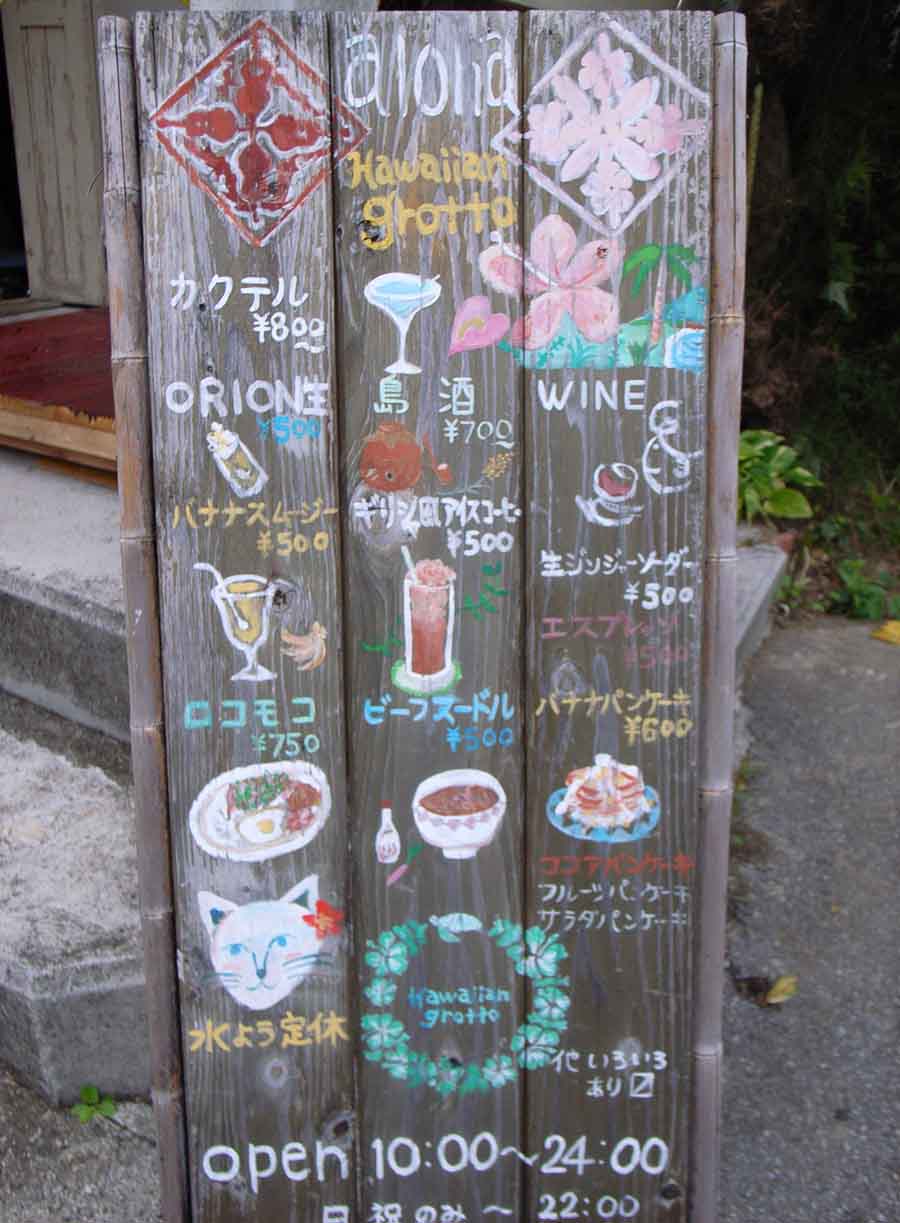 aloha
Hawaiian
grotto
カクテル
¥800
ORION生
¥500
島酒
¥700
WINE
バナナスムージー
¥500
ギリシャ風アイスコーヒー
¥500
生ジンジャーソーダー
¥500
エスプレッソ
¥500
ロコモコ
¥750
ビーフヌードル
¥500
バナナパンケーキ
¥600
ココアパンケーキ
フルーツパンケーキ
サラダパンケーキ
Hawaiian
grotto
水よう定休
他いろいろ
あり〼
open 10:00〜24:00
日祝のみ〜22:00